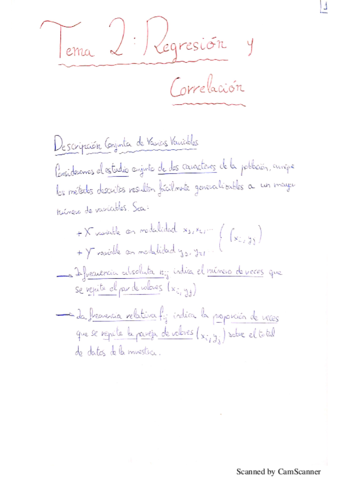 1
Tema 2: Regresión y
Correlación
Descripción Conjunta de Varias Variables
Consideramos el estudio conjunto de dos caracteres de la población, aunque
los métodos descritos resultan fácilmente generalizables a un mayor
número de variables. Sea:
+ X variable con modalidad x₁, x₂, ...
+ Y variable con modalidad y₁, y₂, ... (xᵢ, yⱼ)
frecuencia absoluta nᵢⱼ indica el número de veces que
se repite el par de valores (xᵢ, yⱼ)
La frecuencia relativa fᵢⱼ indica la proporción de veces
que se repite la pareja de valores (xᵢ, yⱼ) sobre el total
de datos de la muestra.
Scanned by CamScanner